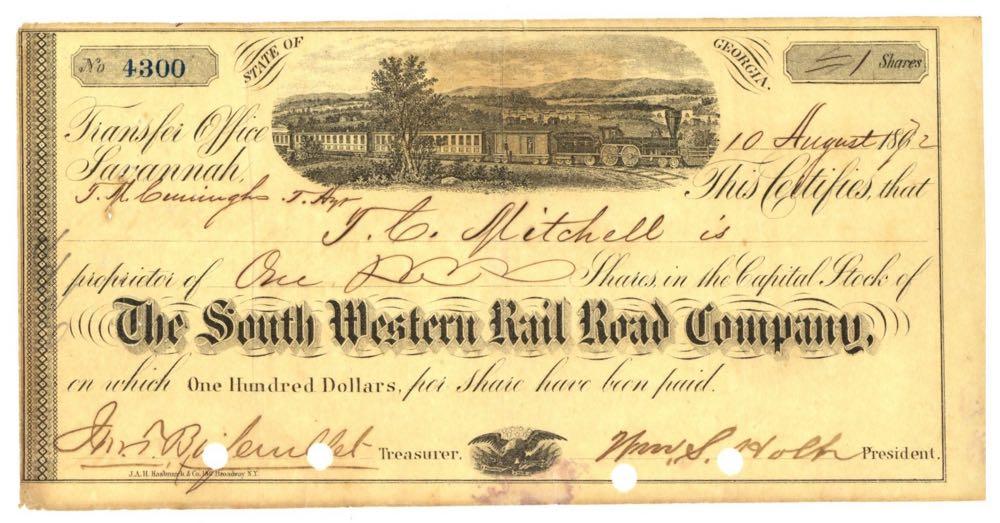 No 4300
STATE OF GEORGIA.
1 Shares
Transfer Office
Savannah,
10 August 1872
This Certifies, that
T. C. Mitchell is
proprietor of One Shares, in the Capital Stock of
The South Western Rail Road Company,
on which One Hundred Dollars, per share have been paid.
Treasurer.
Wm. S. Holt President.
J.A.H. & Co. Broadway N.Y.